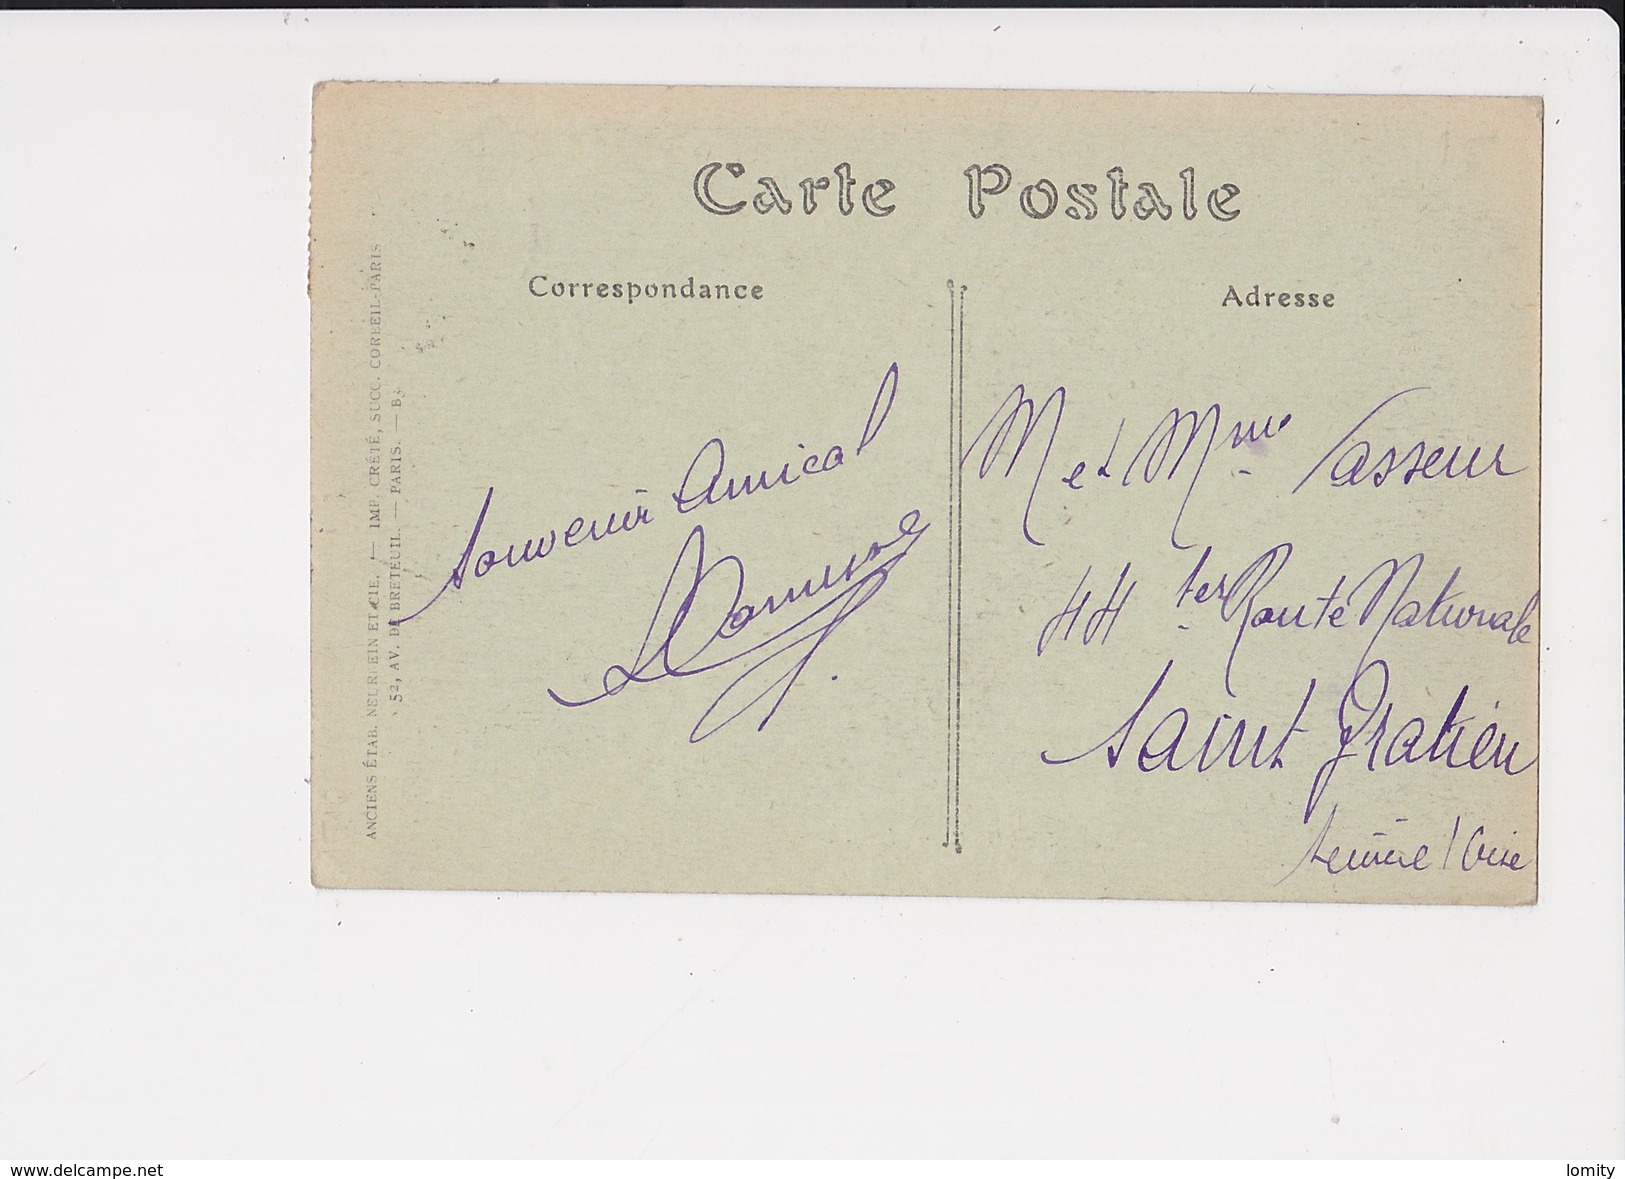 Carte Postale
Correspondance
Adresse
Souvenir Amical
M et Mme Vasseur
44 ter Route Nationale
Saint Gratien
Seine / Oise
ANCIENS ÉTAB. NEURDEIN ET CIE. — IMP. CRÉTÉ, SUCC. CORBEIL-PARIS
52, AV. DE BRETEUIL. — PARIS. — B3
www.delcampe.net
lomity